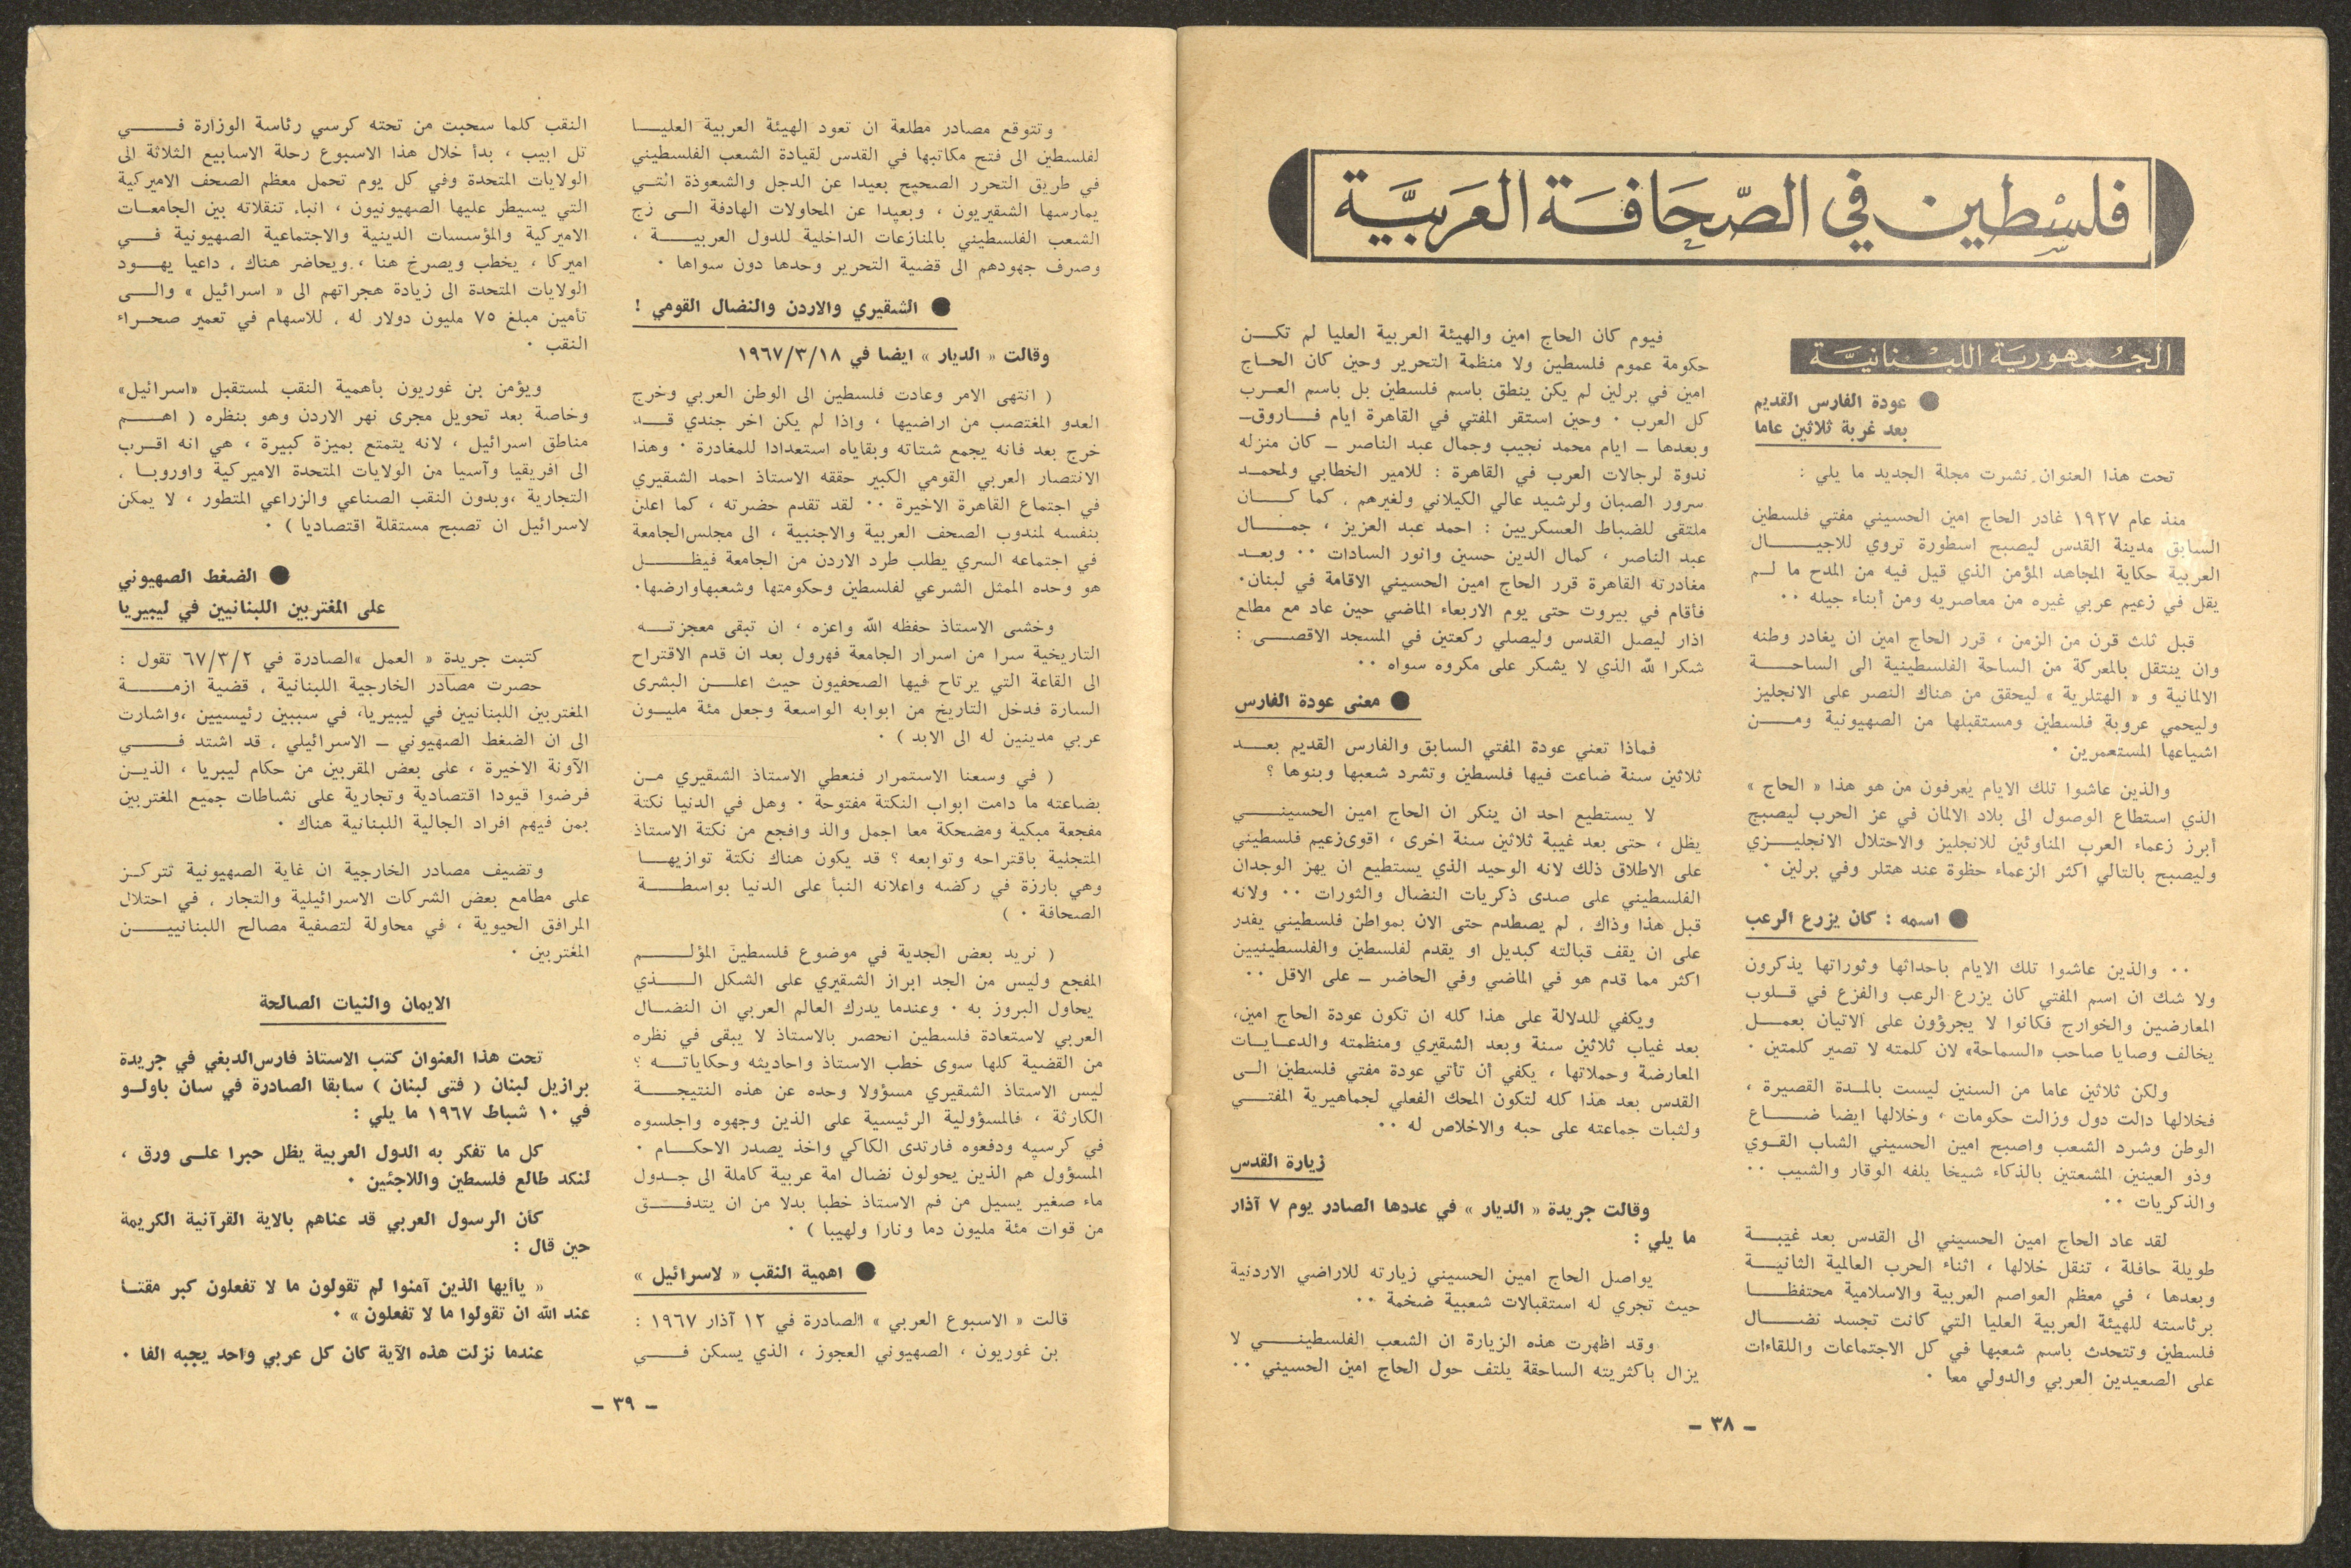 فلسطين في الصحافة العربية
الجمهورية اللبنانية
● عودة الفارس القديم
بعد غربة ثلاثين عاما
تحت هذا العنوان نشرت مجلة الجديد ما يلي :
منذ عام ١٩٢٧ غادر الحاج امين الحسيني مفتي فلسطين
السابق مدينة القدس ليصبح اسطورة تروي للاجيال
العربية حكاية المجاهد المؤمن الذي قيل فيه من المدح ما لم
يقل في زعيم عربي غيره من معاصريه ومن أبناء جيله ٠٠
قبل ثلث قرن من الزمن ، قرر الحاج امين ان يغادر وطنه
وان ينتقل بالمعركة من الساحة الفلسطينية الى الساحة
الالمانية و « الهتلرية » ليحقق من هناك النصر على الانجليز
وليحمي عروبة فلسطين ومستقبلها من الصهيونية ومن
اشياعها المستعمرين ٠
والذين عاشوا تلك الايام يعرفون من هو هذا « الحاج »
الذي استطاع الوصول الى بلاد الالمان في عز الحرب ليصبح
أبرز زعماء العرب المناوئين للانجليز والاحتلال الانجليزي
وليصبح بالتالي اكثر الزعماء حظوة عند هتلر وفي برلين ٠
● اسمه : كان يزرع الرعب
٠٠ والذين عاشوا تلك الايام باحداثها وثوراتها يذكرون
ولا شك ان اسم المفتي كان يزرع الرعب والفزع في قلوب
المعارضين والخوارج فكانوا لا يجرؤون على الاتيان بعمل
يخالف وصايا صاحب «السماحة» لان كلمته لا تصير كلمتين ٠
ولكن ثلاثين عاما من السنين ليست بالمدة القصيرة ،
فخلالها دالت دول وزالت حكومات ، وخلالها ايضا ضاع
الوطن وشرد الشعب واصبح امين الحسيني الشاب القوي
وذو العينين المشعتين بالذكاء شيخا يلفه الوقار والشيب ٠٠
والذكريات ٠٠
لقد عاد الحاج امين الحسيني الى القدس بعد غيبة
طويلة حافلة ، تنقل خلالها ، اثناء الحرب العالمية الثانية
وبعدها ، في معظم العواصم العربية والاسلامية محتفظا
برئاسته للهيئة العربية العليا التي كانت تجسد نضال
فلسطين وتتحدث باسم شعبها في كل الاجتماعات واللقاءات
على الصعيدين العربي والدولي معا ٠
فيوم كان الحاج امين والهيئة العربية العليا لم تكن
حكومة عموم فلسطين ولا منظمة التحرير وحين كان الحاج
امين في برلين لم يكن ينطق باسم فلسطين بل باسم العرب
كل العرب ٠ وحين استقر المفتي في القاهرة ايام فاروق ـ
وبعدها ـ ايام محمد نجيب وجمال عبد الناصر ـ كان منزله
ندوة لرجالات العرب في القاهرة : للامير الخطابي ولمحمد
سرور الصبان ولرشيد عالي الكيلاني ولغيرهم ، كما كان
ملتقى للضباط العسكريين : احمد عبد العزيز ، جمال
عبد الناصر ، كمال الدين حسين وانور السادات ٠٠ وبعد
مغادرته القاهرة قرر الحاج امين الحسيني الاقامة في لبنان ٠
فأقام في بيروت حتى يوم الاربعاء الماضي حين عاد مع مطلع
اذار ليصل القدس وليصلي ركعتين في المسجد الاقصى :
شكرا لله الذي لا يشكر على مكروه سواه ٠٠
● معنى عودة الفارس
فماذا تعني عودة المفتي السابق والفارس القديم بعد
ثلاثين سنة ضاعت فيها فلسطين وتشرد شعبها وبنوها ؟
لا يستطيع احد ان ينكر ان الحاج امين الحسيني
يظل ، حتى بعد غيبة ثلاثين سنة اخرى ، اقوى زعيم فلسطيني
على الاطلاق ذلك لانه الوحيد الذي يستطيع ان يهز الوجدان
الفلسطيني على صدى ذكريات النضال والثورات ٠٠ ولانه
قبل هذا وذاك ، لم يصطدم حتى الان بمواطن فلسطيني يقدر
على ان يقف قبالته كبديل او يقدم لفلسطين والفلسطينيين
اكثر مما قدم هو في الماضي وفي الحاضر ـ على الاقل ٠٠
ويكفي للدلالة على هذا كله ان تكون عودة الحاج امين،
بعد غياب ثلاثين سنة وبعد الشقيري ومنظمته والدعايات
المعارضة وحملاتها ، يكفي أن تأتي عودة مفتي فلسطين الى
القدس بعد هذا كله لتكون المحك الفعلي لجماهيرية المفتي
ولثبات جماعته على حبه والاخلاص له ٠٠
زيارة القدس
وقالت جريدة « الديار » في عددها الصادر يوم ٧ آذار
ما يلي :
يواصل الحاج امين الحسيني زيارته للاراضي الاردنية
حيث تجري له استقبالات شعبية ضخمة ٠٠
وقد اظهرت هذه الزيارة ان الشعب الفلسطيني لا
يزال باكثريته الساحقة يلتف حول الحاج امين الحسيني ٠٠
ـ ٣٨ ـ
وتتوقع مصادر مطلعة ان تعود الهيئة العربية العليا
لفلسطين الى فتح مكاتبها في القدس لقيادة الشعب الفلسطيني
في طريق التحرر الصحيح بعيدا عن الدجل والشعوذة التي
يمارسها الشقيريون ، وبعيدا عن المحاولات الهادفة الى زج
الشعب الفلسطيني بالمنازعات الداخلية للدول العربية ،
وصرف جهودهم الى قضية التحرير وحدها دون سواها ٠
● الشقيري والاردن والنضال القومي !
وقالت « الديار » ايضا في ١٩٦٧/٣/١٨
( انتهى الامر وعادت فلسطين الى الوطن العربي وخرج
العدو المغتصب من اراضيها ، واذا لم يكن اخر جندي قد
خرج بعد فانه يجمع شتاته وبقاياه استعدادا للمغادرة ٠ وهذا
الانتصار العربي القومي الكبير حققه الاستاذ احمد الشقيري
في اجتماع القاهرة الاخيرة ٠٠ لقد تقدم حضرته ، كما اعلن
بنفسه لمندوب الصحف العربية والاجنبية ، الى مجلس الجامعة
في اجتماعه السري يطلب طرد الاردن من الجامعة فيظل
هو وحده الممثل الشرعي لفلسطين وحكومتها وشعبها وارضها ٠
وخشى الاستاذ حفظه الله واعزه ، ان تبقى معجزته
التاريخية سرا من اسرار الجامعة فهرول بعد ان قدم الاقتراح
الى القاعة التي يرتاح فيها الصحفيون حيث اعلن البشرى
السارة فدخل التاريخ من ابوابه الواسعة وجعل مئة مليون
عربي مدينين له الى الابد ) ٠
( في وسعنا الاستمرار فنعطي الاستاذ الشقيري من
بضاعته ما دامت ابواب النكتة مفتوحة ٠ وهل في الدنيا نكتة
مفجعة مبكية ومضحكة معا اجمل والذ وافجع من نكتة الاستاذ
المتجلية باقتراحه وتوابعه ؟ قد يكون هناك نكتة توازيها
وهي بارزة في ركضه واعلانه النبأ على الدنيا بواسطة
الصحافة ٠ )
( نريد بعض الجدية في موضوع فلسطين المؤلم
المفجع وليس من الجد ابراز الشقيري على الشكل الذي
يحاول البروز به ٠ وعندما يدرك العالم العربي ان النضال
العربي لاستعادة فلسطين انحصر بالاستاذ لا يبقى في نظره
من القضية كلها سوى خطب الاستاذ واحاديثه وحكاياته ؟
ليس الاستاذ الشقيري مسؤولا وحده عن هذه النتيجة
الكارثة ، فالمسؤولية الرئيسية على الذين وجهوه واجلسوه
في كرسيه ودفعوه فارتدى الكاكي واخذ يصدر الاحكام ٠
المسؤول هم الذين يحولون نضال امة عربية كاملة الى جدول
ماء صغير يسيل من فم الاستاذ خطبا بدلا من ان يتدفق
من قوات مئة مليون دما ونارا ولهيبا ) ٠
● اهمية النقب « لاسرائيل »
قالت « الاسبوع العربي » الصادرة في ١٢ آذار ١٩٦٧ :
بن غوريون ، الصهيوني العجوز ، الذي يسكن في
النقب كلما سحبت من تحته كرسي رئاسة الوزارة في
تل ابيب ، بدأ خلال هذا الاسبوع رحلة الاسابيع الثلاثة الى
الولايات المتحدة وفي كل يوم تحمل معظم الصحف الاميركية
التي يسيطر عليها الصهيونيون ، انباء تنقلاته بين الجامعات
الاميركية والمؤسسات الدينية والاجتماعية الصهيونية في
اميركا ، يخطب ويصرخ هنا ، ويحاضر هناك ، داعيا يهود
الولايات المتحدة الى زيادة هجراتهم الى « اسرائيل » والى
تأمين مبلغ ٧٥ مليون دولار له ، للاسهام في تعمير صحراء
النقب ٠
ويؤمن بن غوريون بأهمية النقب لمستقبل «اسرائيل»
وخاصة بعد تحويل مجرى نهر الاردن وهو بنظره ( اهم
مناطق اسرائيل ، لانه يتمتع بميزة كبيرة ، هي انه اقرب
الى افريقيا وآسيا من الولايات المتحدة الاميركية واوروبا ،
التجارية ،وبدون النقب الصناعي والزراعي المتطور ، لا يمكن
لاسرائيل ان تصبح مستقلة اقتصاديا ) ٠
● الضغط الصهيوني
على المغتربين اللبنانيين في ليبيريا
كتبت جريدة « العمل »الصادرة في ٦٧/٣/٢ تقول :
حصرت مصادر الخارجية اللبنانية ، قضية ازمة
المغتربين اللبنانيين في ليبيريا، في سببين رئيسيين ،واشارت
الى ان الضغط الصهيوني ـ الاسرائيلي ، قد اشتد في
الآونة الاخيرة ، على بعض المقربين من حكام ليبريا ، الذين
فرضوا قيودا اقتصادية وتجارية على نشاطات جميع المغتربين
بمن فيهم افراد الجالية اللبنانية هناك ٠
وتضيف مصادر الخارجية ان غاية الصهيونية تتركز
على مطامع بعض الشركات الاسرائيلية والتجار ، في احتلال
المرافق الحيوية ، في محاولة لتصفية مصالح اللبنانيين
المغتربين ٠
الايمان والنيات الصالحة
تحت هذا العنوان كتب الاستاذ فارس الدبغي في جريدة
برازيل لبنان ( فتى لبنان ) سابقا الصادرة في سان باولو
في ١٠ شباط ١٩٦٧ ما يلي :
كل ما تفكر به الدول العربية يظل حبرا على ورق ،
لنكد طالع فلسطين واللاجئين ٠
كأن الرسول العربي قد عناهم بالاية القرآنية الكريمة
حين قال :
« ياأيها الذين آمنوا لم تقولون ما لا تفعلون كبر مقتا
عند الله ان تقولوا ما لا تفعلون » ٠
عندما نزلت هذه الآية كان كل عربي واحد يجبه الفا ٠
ـ ٣٩ ـ